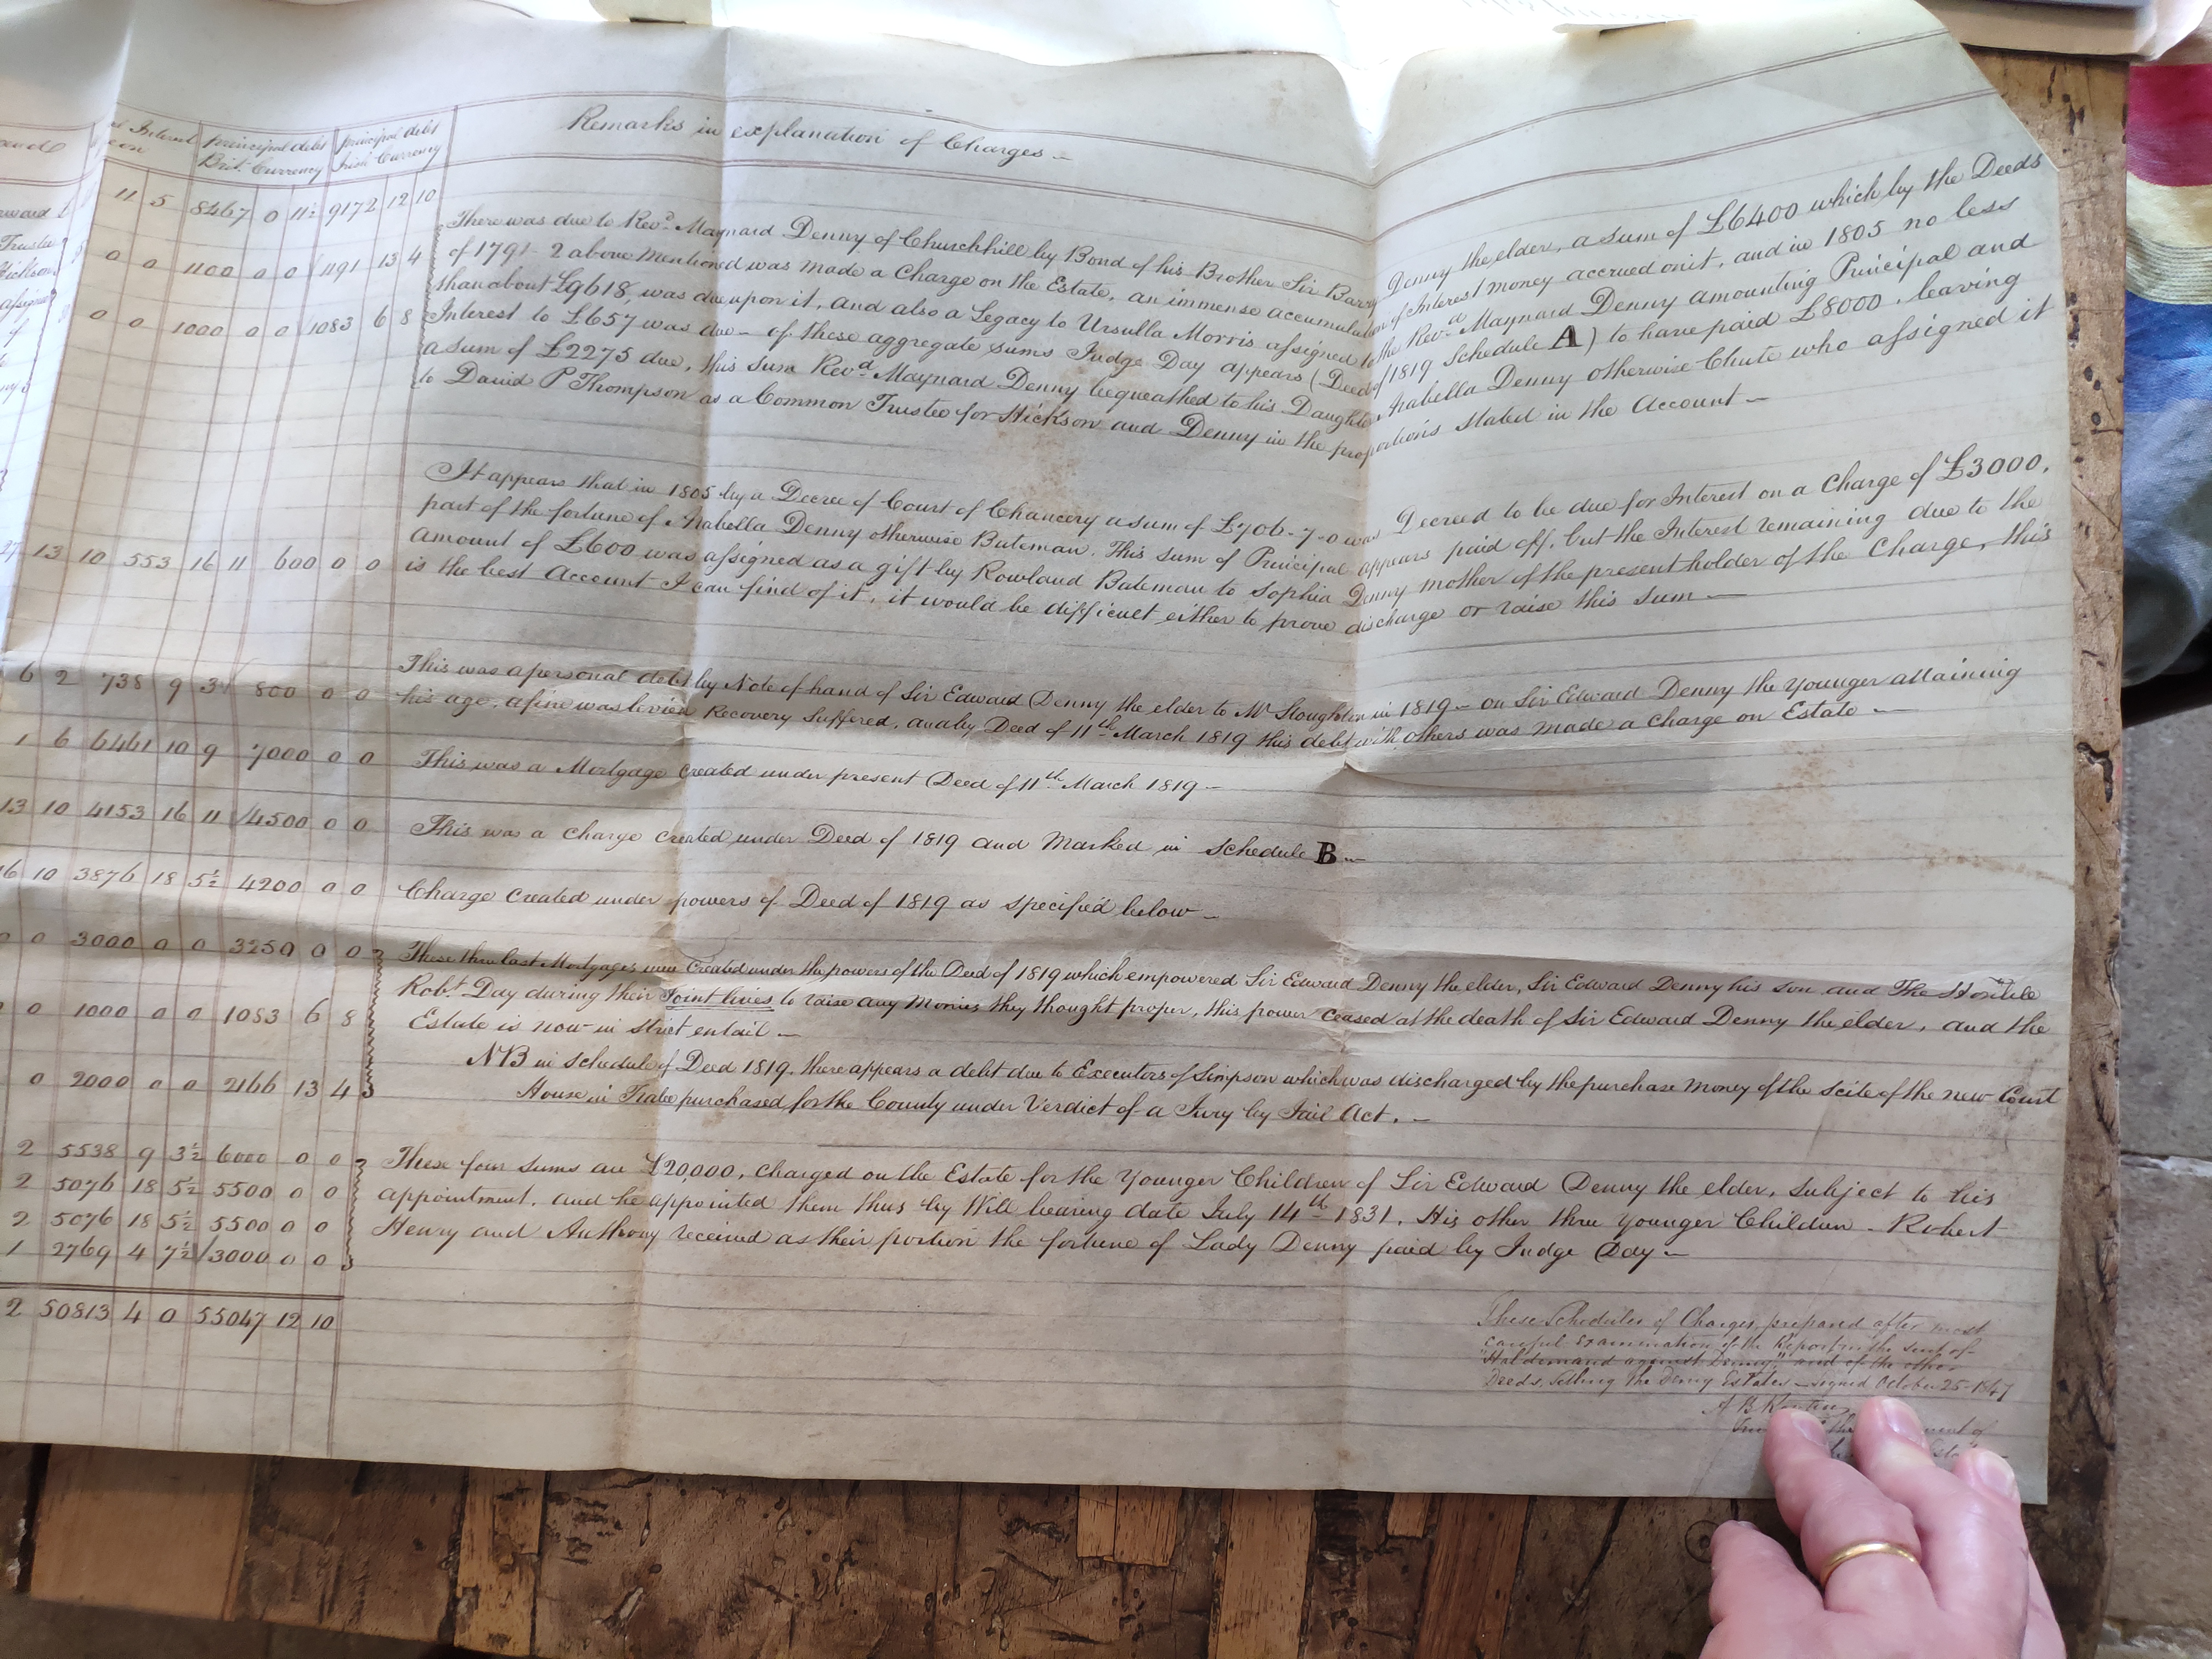 Remarks in explanation of Charges –
Interest principal debt principal debt
on Brit. Currency Irish Currency
11 5 8467 0 11½ 9172 12 10
0 0 1100 0 0 1191 13 4
0 0 1000 0 0 1083 6 8
There was due to Revd. Maynard Denny of Churchhill by Bond of his Brother Sir Barry Denny the elder, a sum of £6400 which by the Deeds
of 1791–2 above mentioned was made a Charge on the Estate, an immense accumulation of Interest money accrued on it, and in 1805 no less
than about £9618, was due upon it, and also a Legacy to Ursulla Morris assigned to the Revd Maynard Denny amounting Principal and
Interest to £657 was due – of these aggregate sums Judge Day appears (Deed of 1819 Schedule A) to have paid £8000. leaving
a sum of £2275 due, this sum Revd. Maynard Denny bequeathed to his Daughter Arabella Denny otherwise Chute who assigned it
to David P Thompson as a Common Trustee for Hickson and Denny in the proportions stated in the Account –
13 10 553 16 11 600 0 0
It appears that in 1805 by a Decree of Court of Chancery a sum of £706-7-0 was Decreed to be due for Interest on a Charge of £3000,
part of the fortune of Arabella Denny otherwise Bateman. This sum of Principal appears paid off, but the Interest remaining due to the
Amount of £600 was assigned as a gift by Rowland Bateman to Sophia Denny mother of the present holder of the Charge, this
is the best Account I can find of it, it would be difficult either to prove discharge or raise this sum –
6 2 738 9 3 800 0 0
This was a personal debt by Note of hand of Sir Edward Denny the elder to Mr Stoughton in 1819 – on Sir Edward Denny the Younger attaining
his age, a fine was levied Recovery Suffered, and by Deed of 11th March 1819 this debt with others was made a Charge on Estate –
1 6 6461 10 9 7000 0 0
This was a Mortgage created under present Deed of 11th March 1819 –
13 10 4153 16 11 4500 0 0
This was a Charge created under Deed of 1819 and Marked in Schedule B –
16 10 3876 18 5½ 4200 0 0
Charge created under powers of Deed of 1819 as specified below –
0 0 3000 0 0 3250 0 0
0 1000 0 0 1083 6 8
0 2000 0 0 2166 13 4
These three last Mortgages were Created under the powers of the Deed of 1819 which empowered Sir Edward Denny the elder, Sir Edward Denny his son and The Honble
Robt. Day during their Joint lives to raise any Monies they thought proper, this power ceased at the death of Sir Edward Denny the elder, and the
Estate is now in strict entail –
NB in Schedule of Deed 1819. there appears a debt due to Executors of Simpson which was discharged by the purchase money of the scite of the new Court
House in Tralee purchased for the County under Verdict of a Jury by Jail Act. –
2 5538 9 3½ 6000 0 0
2 5076 18 5½ 5500 0 0
2 5076 18 5½ 5500 0 0
1 2769 4 7½ 3000 0 0
These four sums are £20,000, charged on the Estate for the Younger Children of Sir Edward Denny the elder, Subject to his
appointment, and he appointed them thus by Will bearing date July 14th 1831. His other three Younger Children – Robert
Henry and Anthony received as their portion the fortune of Lady Denny paid by Judge Day –
2 50813 4 0 55047 12 10
These Schedules of Charges, prepared after most
careful examination of the Report in the suit of
"Haldimand against Denny" and of the other
Deeds, settling the Denny Estates – signed October 25 – 1847
A B